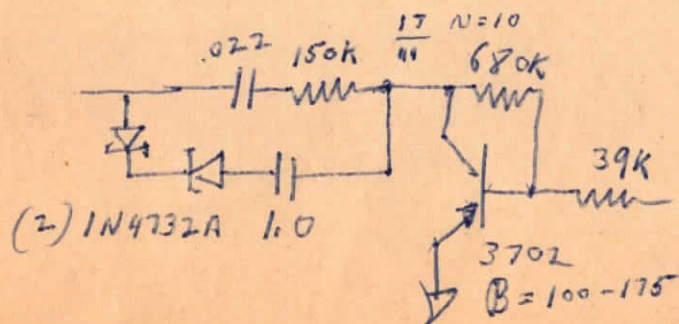 .022
150K
N=10
680K
39K
(2) 1N4732A
1.0
3702
β = 100-175